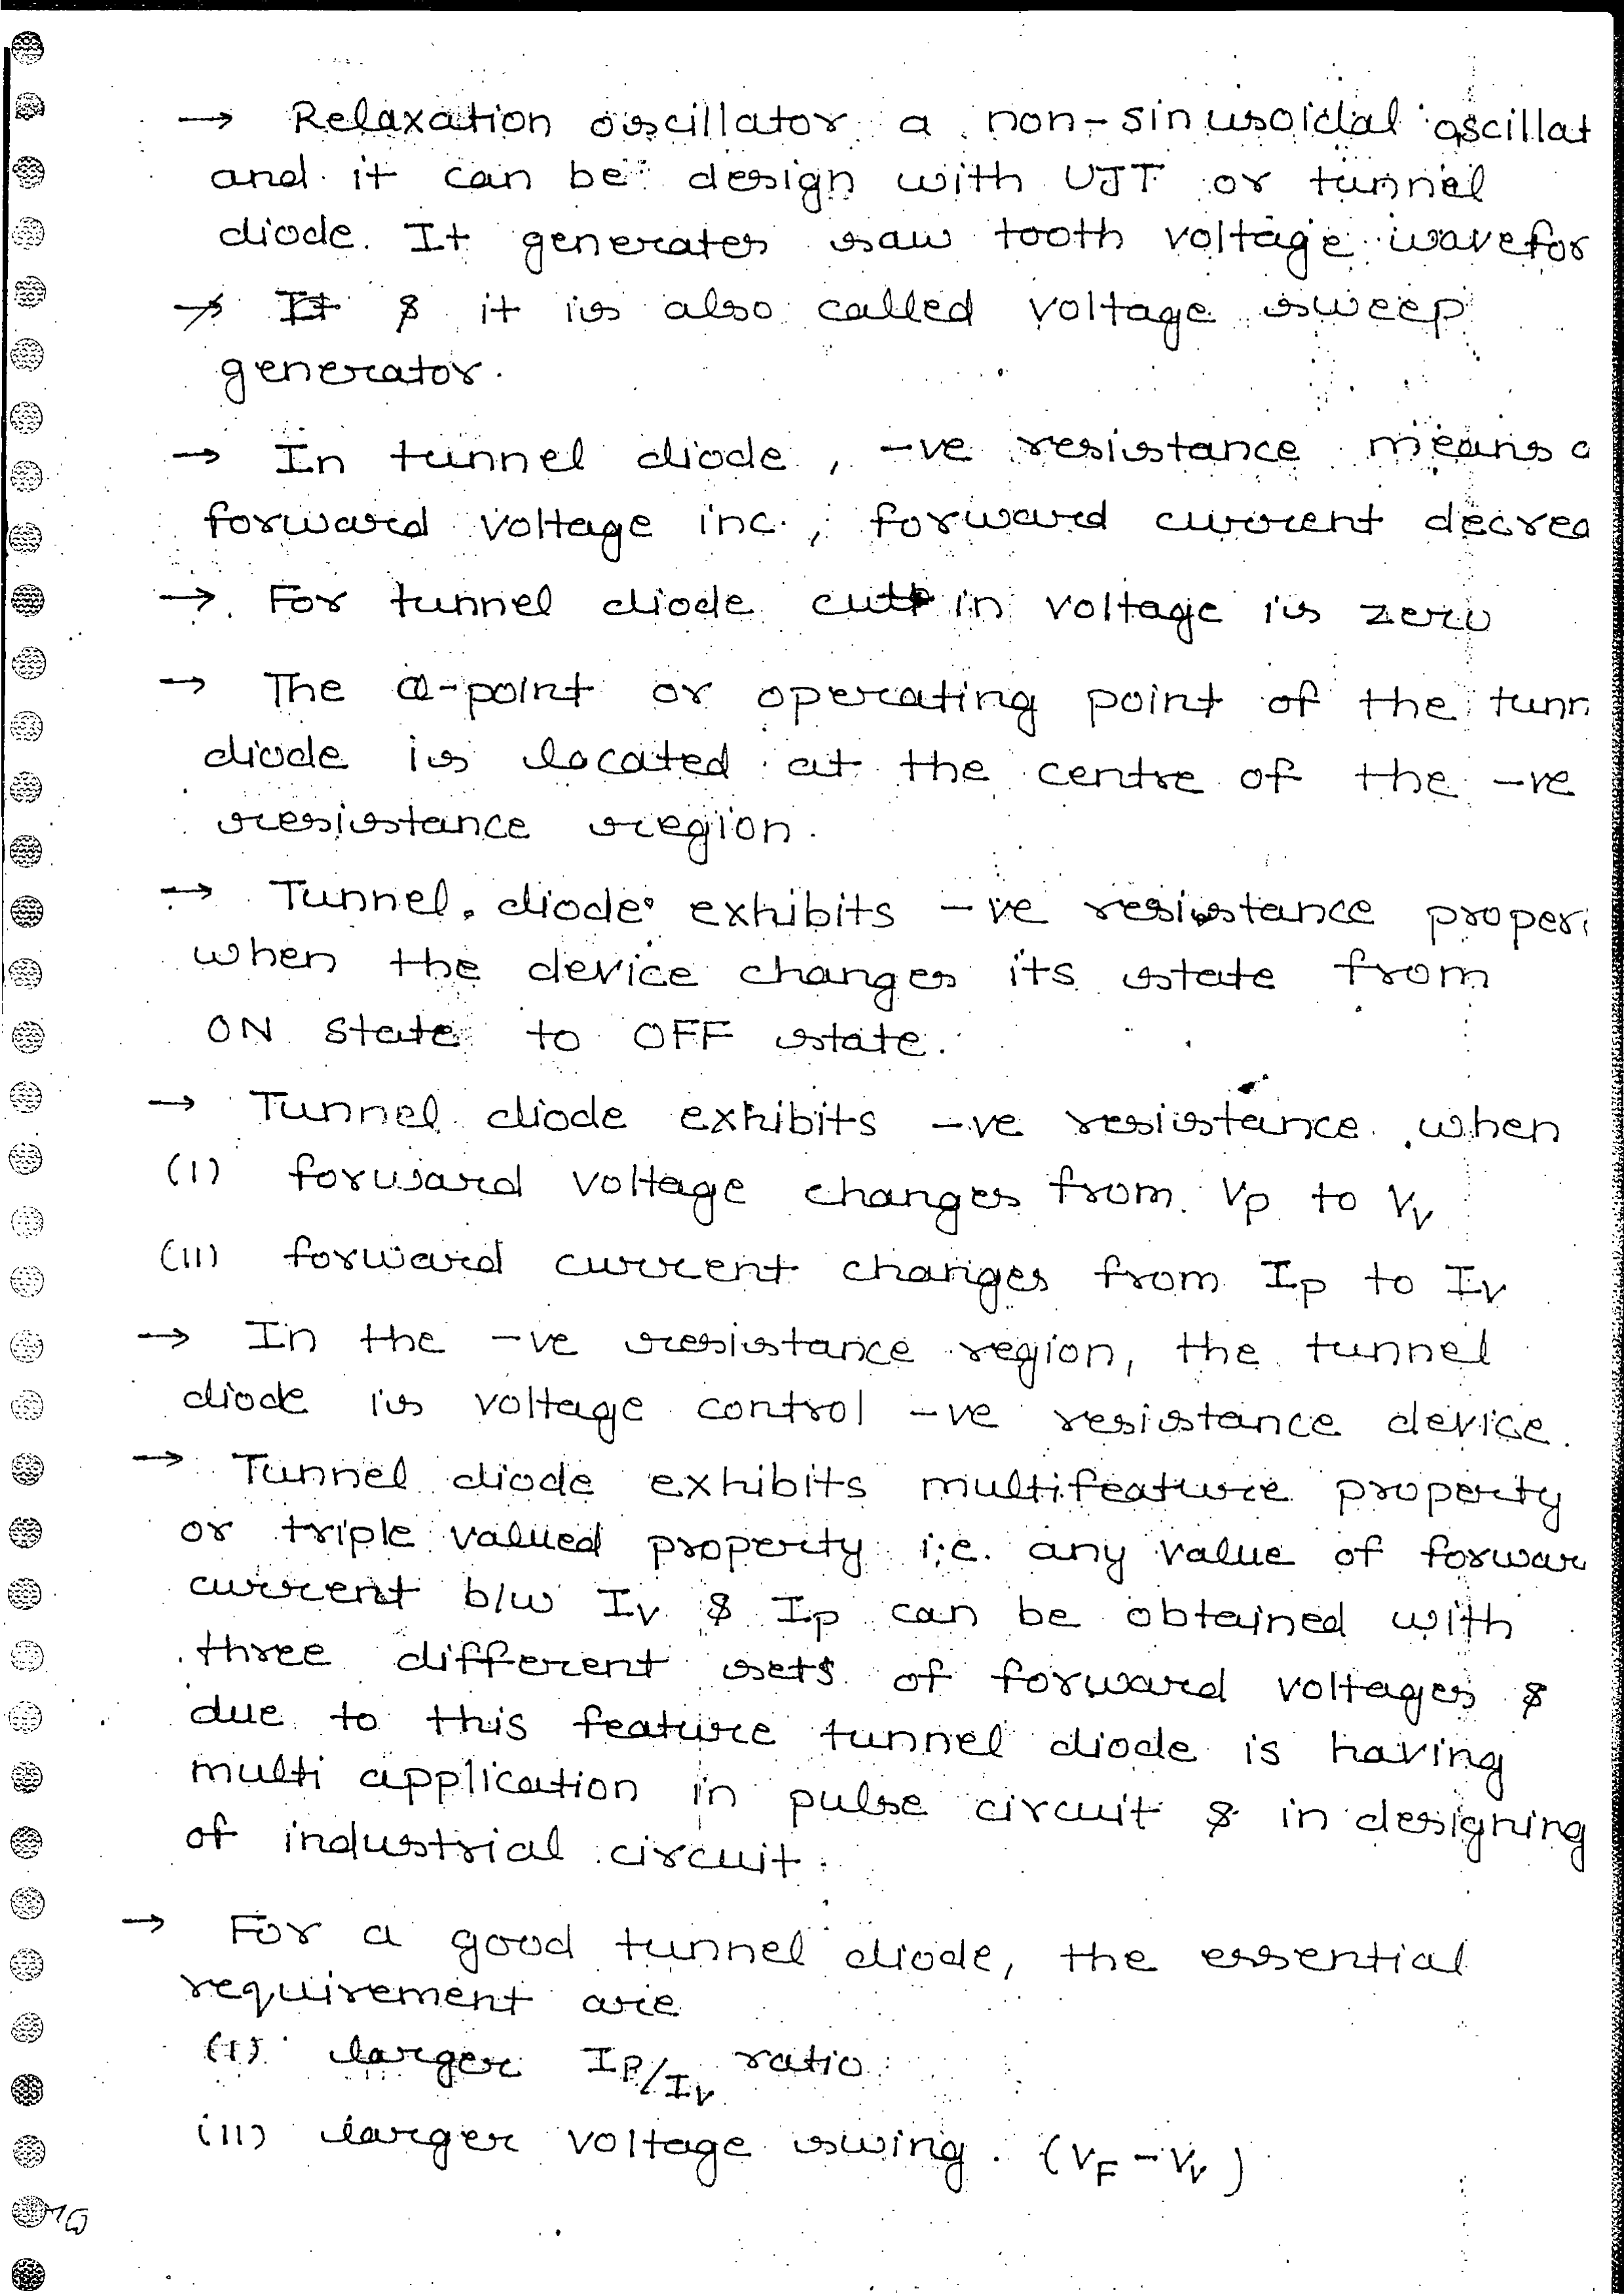 → Relaxation oscillator a non-sinusoidal oscillat
and it can be design with UJT or tunnel
diode. It generates saw tooth voltage wavefor
→ It & it is also called voltage sweep
generator.
→ In tunnel diode, -ve resistance means a
forward voltage inc., forward current decrea
→ For tunnel diode cut in voltage is zero
→ The Q-point or operating point of the tunn
diode is located at the centre of the -ve
resistance region.
→ Tunnel diode exhibits -ve resistance proper
when the device changes its state from
ON state to OFF state.
→ Tunnel diode exhibits -ve resistance when
(I) forward voltage changes from Vp to Vv
(II) forward current changes from Ip to Iv
→ In the -ve resistance region, the tunnel
diode is voltage control -ve resistance device.
→ Tunnel diode exhibits multifeature property
or triple valued property i.e. any value of forwar
current b/w Iv & Ip can be obtained with
three different sets of forward voltages &
due to this feature tunnel diode is having
multi application in pulse circuit & in designing
of industrial circuit.
→ For a good tunnel diode, the essential
requirement are
(I) larger Ip/Iv ratio
(II) larger voltage swing. (VF - Vv)